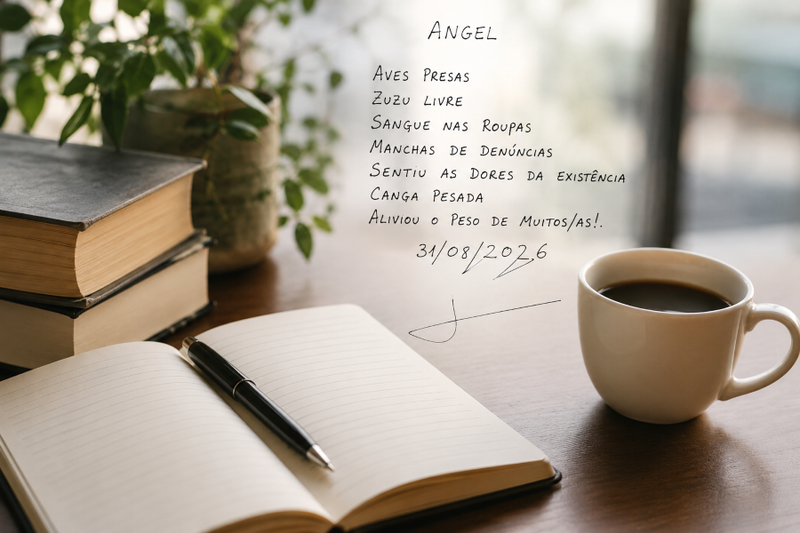 Angel
Aves Presas
Zuzu livre
Sangue nas Roupas
Manchas de denúncias
Sentiu as Dores da existência
Canga Pesada
Aliviou o Peso de Muitos/as!.
31/08/2026